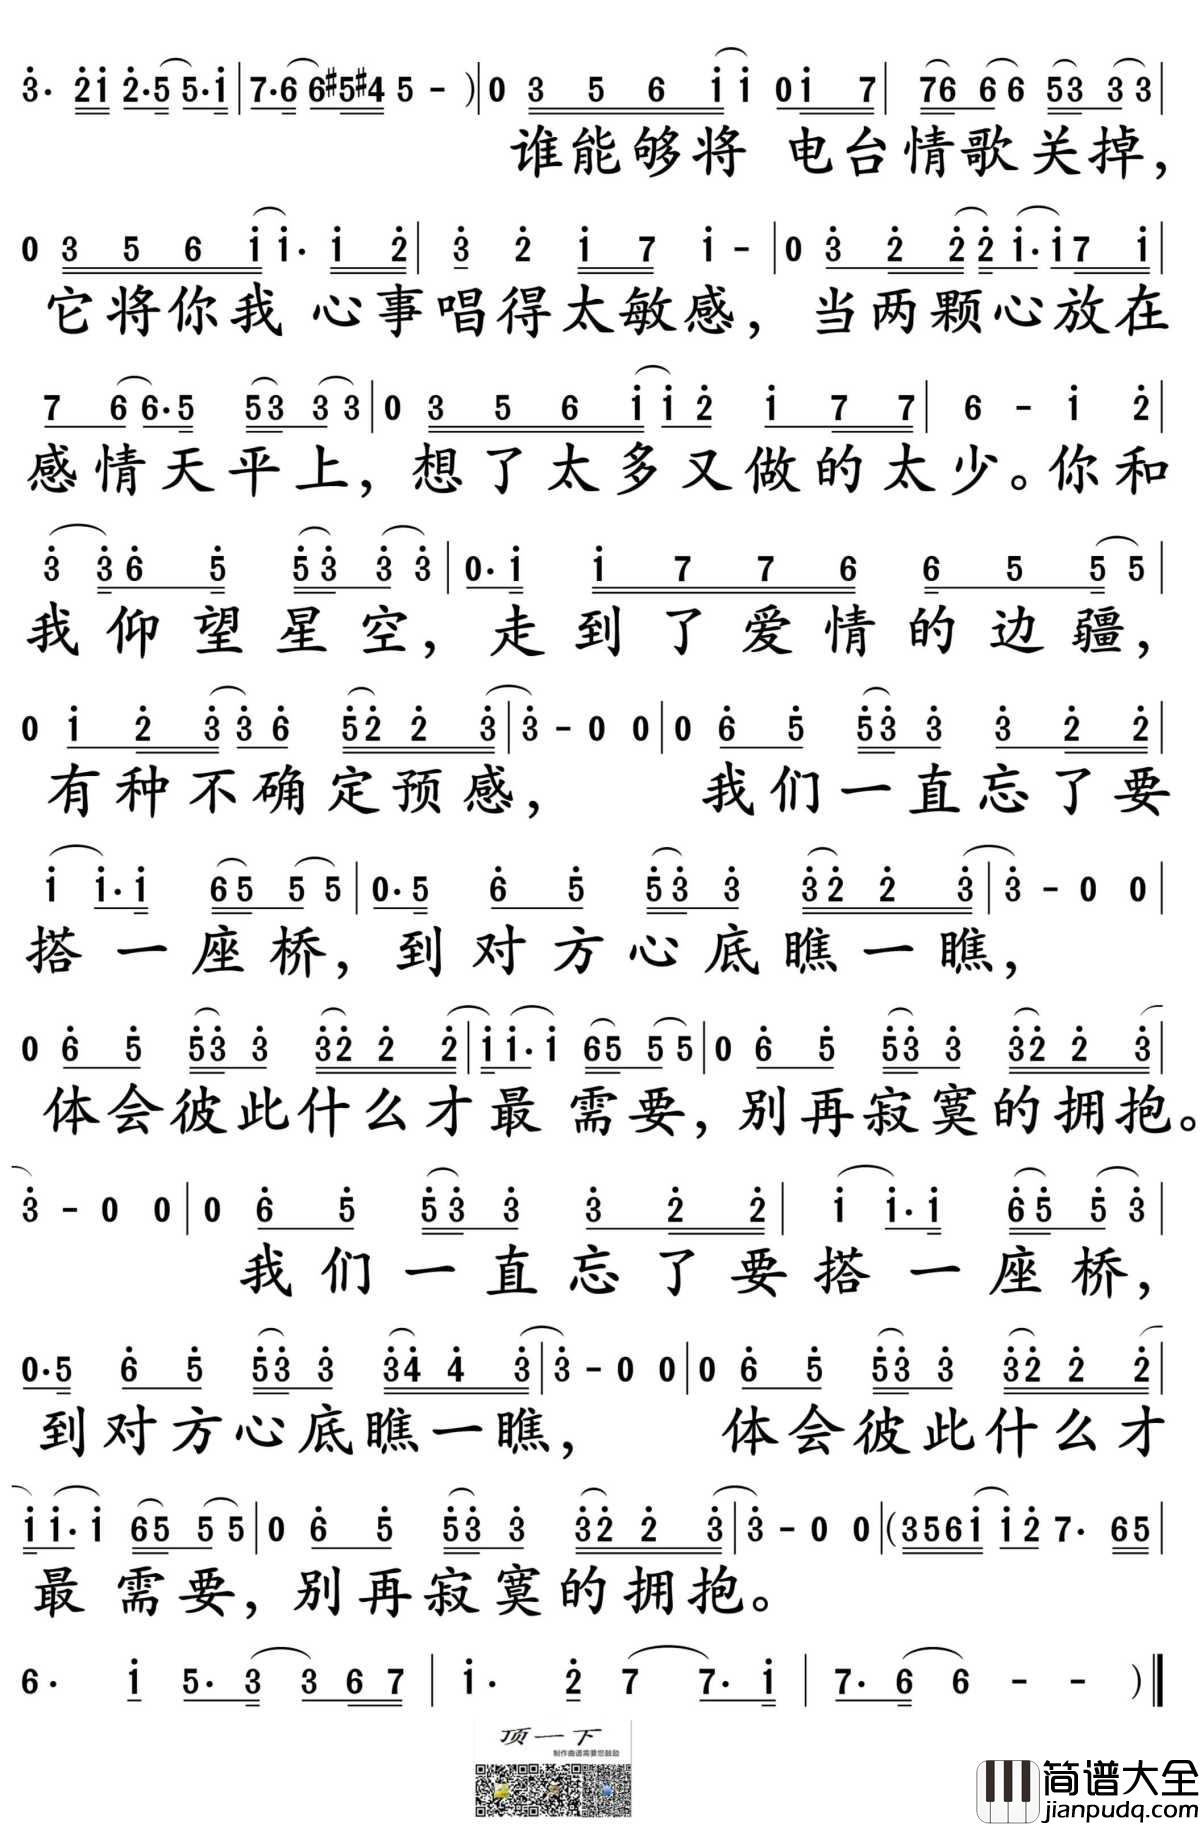 3· 2i 2·5 5·i | 7·6 6#5#4 5 - ) | 0 3 5 6 i i 0i 7 | 76 6 6 53 3 3 |
谁能够将 电台情歌关掉，
0 3 5 6 i i· i 2 | 3 2 i 7 i - | 0 3 2 2 2 i· i 7 i |
它将你我 心事唱得太敏感，当两颗心放在
7 6 6·5 53 3 3 | 0 3 5 6 i i 2 i 7 7 | 6 - i 2 |
感情天平上，想了太多又做的太少。你和
3 3 6 5 53 3 3 | 0· i i 7 7 6 6 5 5 5 |
我仰望星空，走到了爱情的边疆，
0 i 2 3 3 6 52 2 3 | 3 - 0 0 | 0 6 5 53 3 3 2 2 |
有种不确定预感， 我们一直忘了要
i i· i 65 5 5 | 0·5 6 5 53 3 32 2 3 | 3 - 0 0 |
搭一座桥，到对方心底瞧一瞧，
0 6 5 53 3 32 2 2 | i i· i 65 5 5 | 0 6 5 53 3 32 2 3 |
体会彼此什么才最需要，别再寂寞的拥抱。
3 - 0 0 | 0 6 5 53 3 3 2 2 | i i· i 65 5 3 |
我们一直忘了要搭一座桥，
0·5 6 5 53 3 34 4 3 | 3 - 0 0 | 0 6 5 53 3 32 2 2 |
到对方心底瞧一瞧， 体会彼此什么才
i i· i 65 5 5 | 0 6 5 53 3 32 2 3 | 3 - 0 0 | (356i i2 7· 65 |
最需要，别再寂寞的拥抱。
6· i 5· 3 3 6 7 | i· 2 7 7· i | 7· 6 6 - - )‖
顶一下
制作曲谱需要您鼓励
简谱大全
jianpudq.com